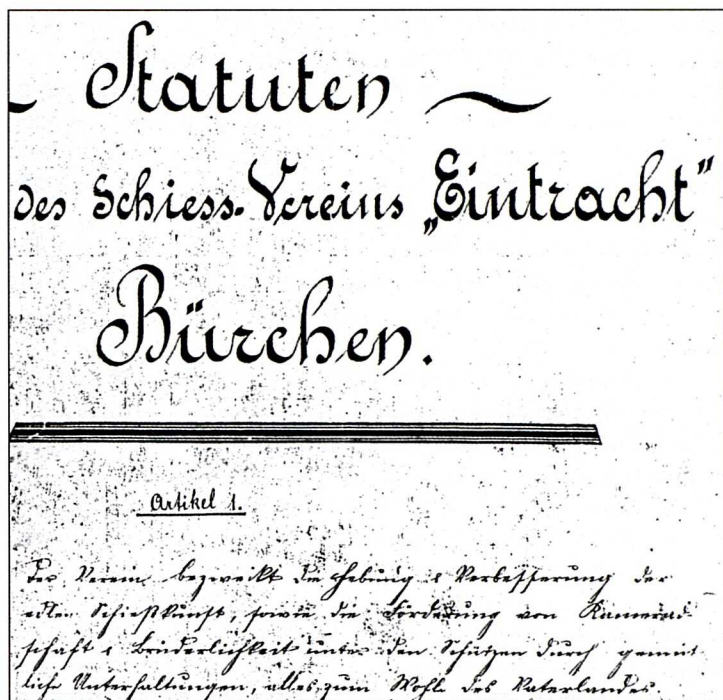 ~ Statuten ~
des Schiess-Vereins „Eintracht"
Bürchen.
Artikel 1.
Der Verein bezweckt die Hebung & Verbesserung der
edlen Schießkunst, sowie die Förderung von Kamerad
schaft & Brüderlichkeit unter den Schützen durch gemüt
liche Unterhaltungen, alles zum Wohle des Vaterlandes.